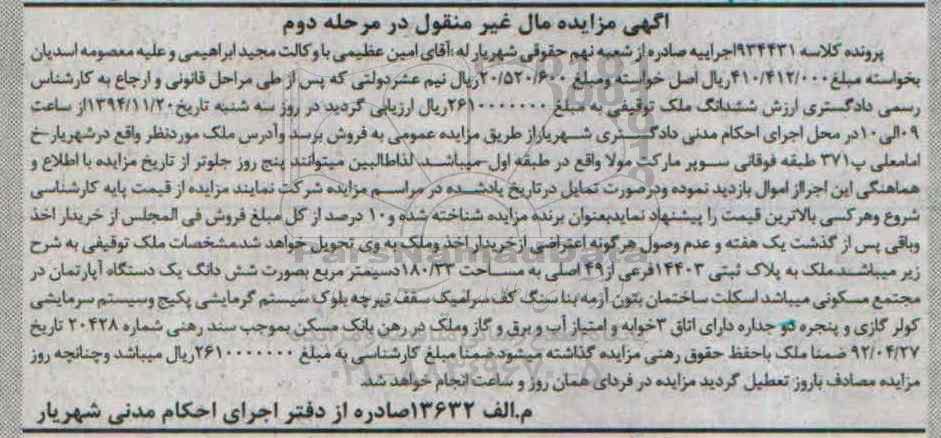 آگهی مزایده مال غیر منقول در مرحله دوم
پرونده کلاسه ۹۳۴۴۳۱اجراییه صادره از شعبه نهم حقوقی شهریار له :آقای امین عظیمی با وکالت مجید ابراهیمی و علیه معصومه اسدیان
بخواسته مبلغ۴۱۰/۴۱۲/۰۰۰ریال اصل خواسته ومبلغ ۲۰/۵۲۰/۶۰۰ریال نیم عشر دولتی که پس از طی مراحل قانونی و ارجاع به کارشناس
رسمی دادگستری ارزش ششدانگ ملک توقیفی به مبلغ ۲۶۱۰۰۰۰۰۰۰ریال ارزیابی گردید در روز سه شنبه تاریخ۱۳۹۴/۱۱/۲۰از ساعت
۰۹الی۱۰در محل اجرای احکام مدنی دادگستری شهریاراز طریق مزایده عمومی به فروش برسد وآدرس ملک موردنظر واقع درشهریار-خ
امامعلی پ۳۷۱ طبقه فوقانی سوپر مارکت مولا واقع در طبقه اول-میباشد. لذاطالبین میتوانند پنج روز جلوتر از تاریخ مزایده با اطلاع و
هماهنگی این اجرااز اموال بازدید نموده ودرصورت تمایل درتاریخ یادشده در مراسم مزایده شرکت نمایند مزایده از قیمت پایه کارشناسی
شروع وهرکسی بالاترین قیمت را پیشنهاد نمایدبعنوان برنده مزایده شناخته شده و۱۰ درصد از کل مبلغ فروش فی المجلس از خریدار اخذ
وباقی پس از گذشت یک هفته و عدم وصول هرگونه اعتراضی ازخریدار اخذ وملک به وی تحویل خواهد شدمشخصات ملک توقیفی به شرح
زیر میباشدملک به پلاک ثبتی ۱۴۴۰۳فرعی از۴۹ اصلی به مساحت ۱۸۰/۳۳دسیمتر مربع بصورت شش دانگ یک دستگاه آپارتمان در
مجتمع مسکونی میباشد اسکلت ساختمان بتون آرمه بنا سنگ کف سرامیک سقف تیرچه بلوک سیستم گرمایشی پکیج وسیستم سرمایشی
کولر گازی و پنجره دو جداره دارای اتاق ۳خوابه و امتیاز آب و برق و گاز وملک در رهن بانک مسکن بموجب سند رهنی شماره ۲۰۴۲۸ تاریخ
۹۲/۰۴/۲۷ ضمنا ملک باحفظ حقوق رهنی مزایده گذاشته میشود ضمنا مبلغ کارشناسی به مبلغ ۲۶۱۰۰۰۰۰۰۰ریال میباشد وچنانچه روز
مزایده مصادف باروز تعطیل گردید مزایده در فردای همان روز و ساعت انجام خواهد شد.
م.الف ۱۳۶۳۲صادره از دفتر اجرای احکام مدنی شهریار
ParsNamadData